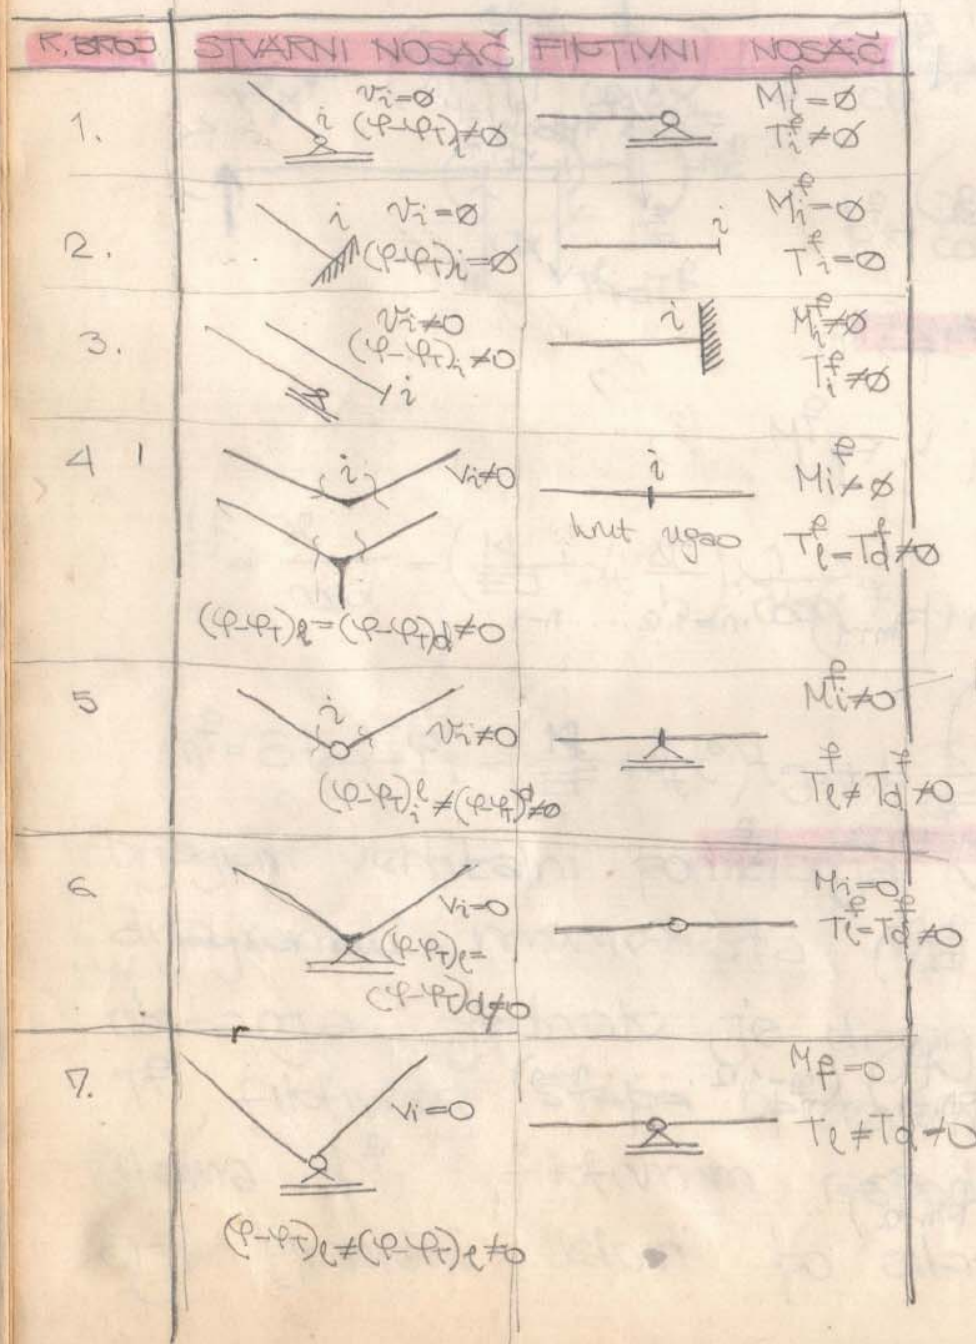 R. BROJ STVARNI NOSAČ FIKTIVNI NOSAČ
1.
i
vi=∅
(φ-φT)i≠∅
Mᶠi=∅
Tᶠi≠∅
2.
i
vi=∅
(φ-φT)i=∅
i
Mᶠi=∅
Tᶠi=∅
3.
vi≠0
(φ-φT)i≠0
i
i
Mᶠi≠∅
Tᶠi≠∅
4
i
vi≠0
(φ-φT)l=(φ-φT)d≠0
i
krut ugao
Mᶠi≠∅
Tᶠl=Tᶠd≠∅
5
i
vi≠0
(φ-φT)ˡi≠(φ-φT)ᵈ≠0
Mᶠi≠0
Tᶠl≠Tᶠd≠0
6
vi=0
(φ-φT)l=
(φ-φT)d≠0
Mi=0
Tᶠl=Tᶠd≠0
7.
vi=0
(φ-φT)l≠(φ-φT)l≠0
Mf=0
Tl≠Td≠0